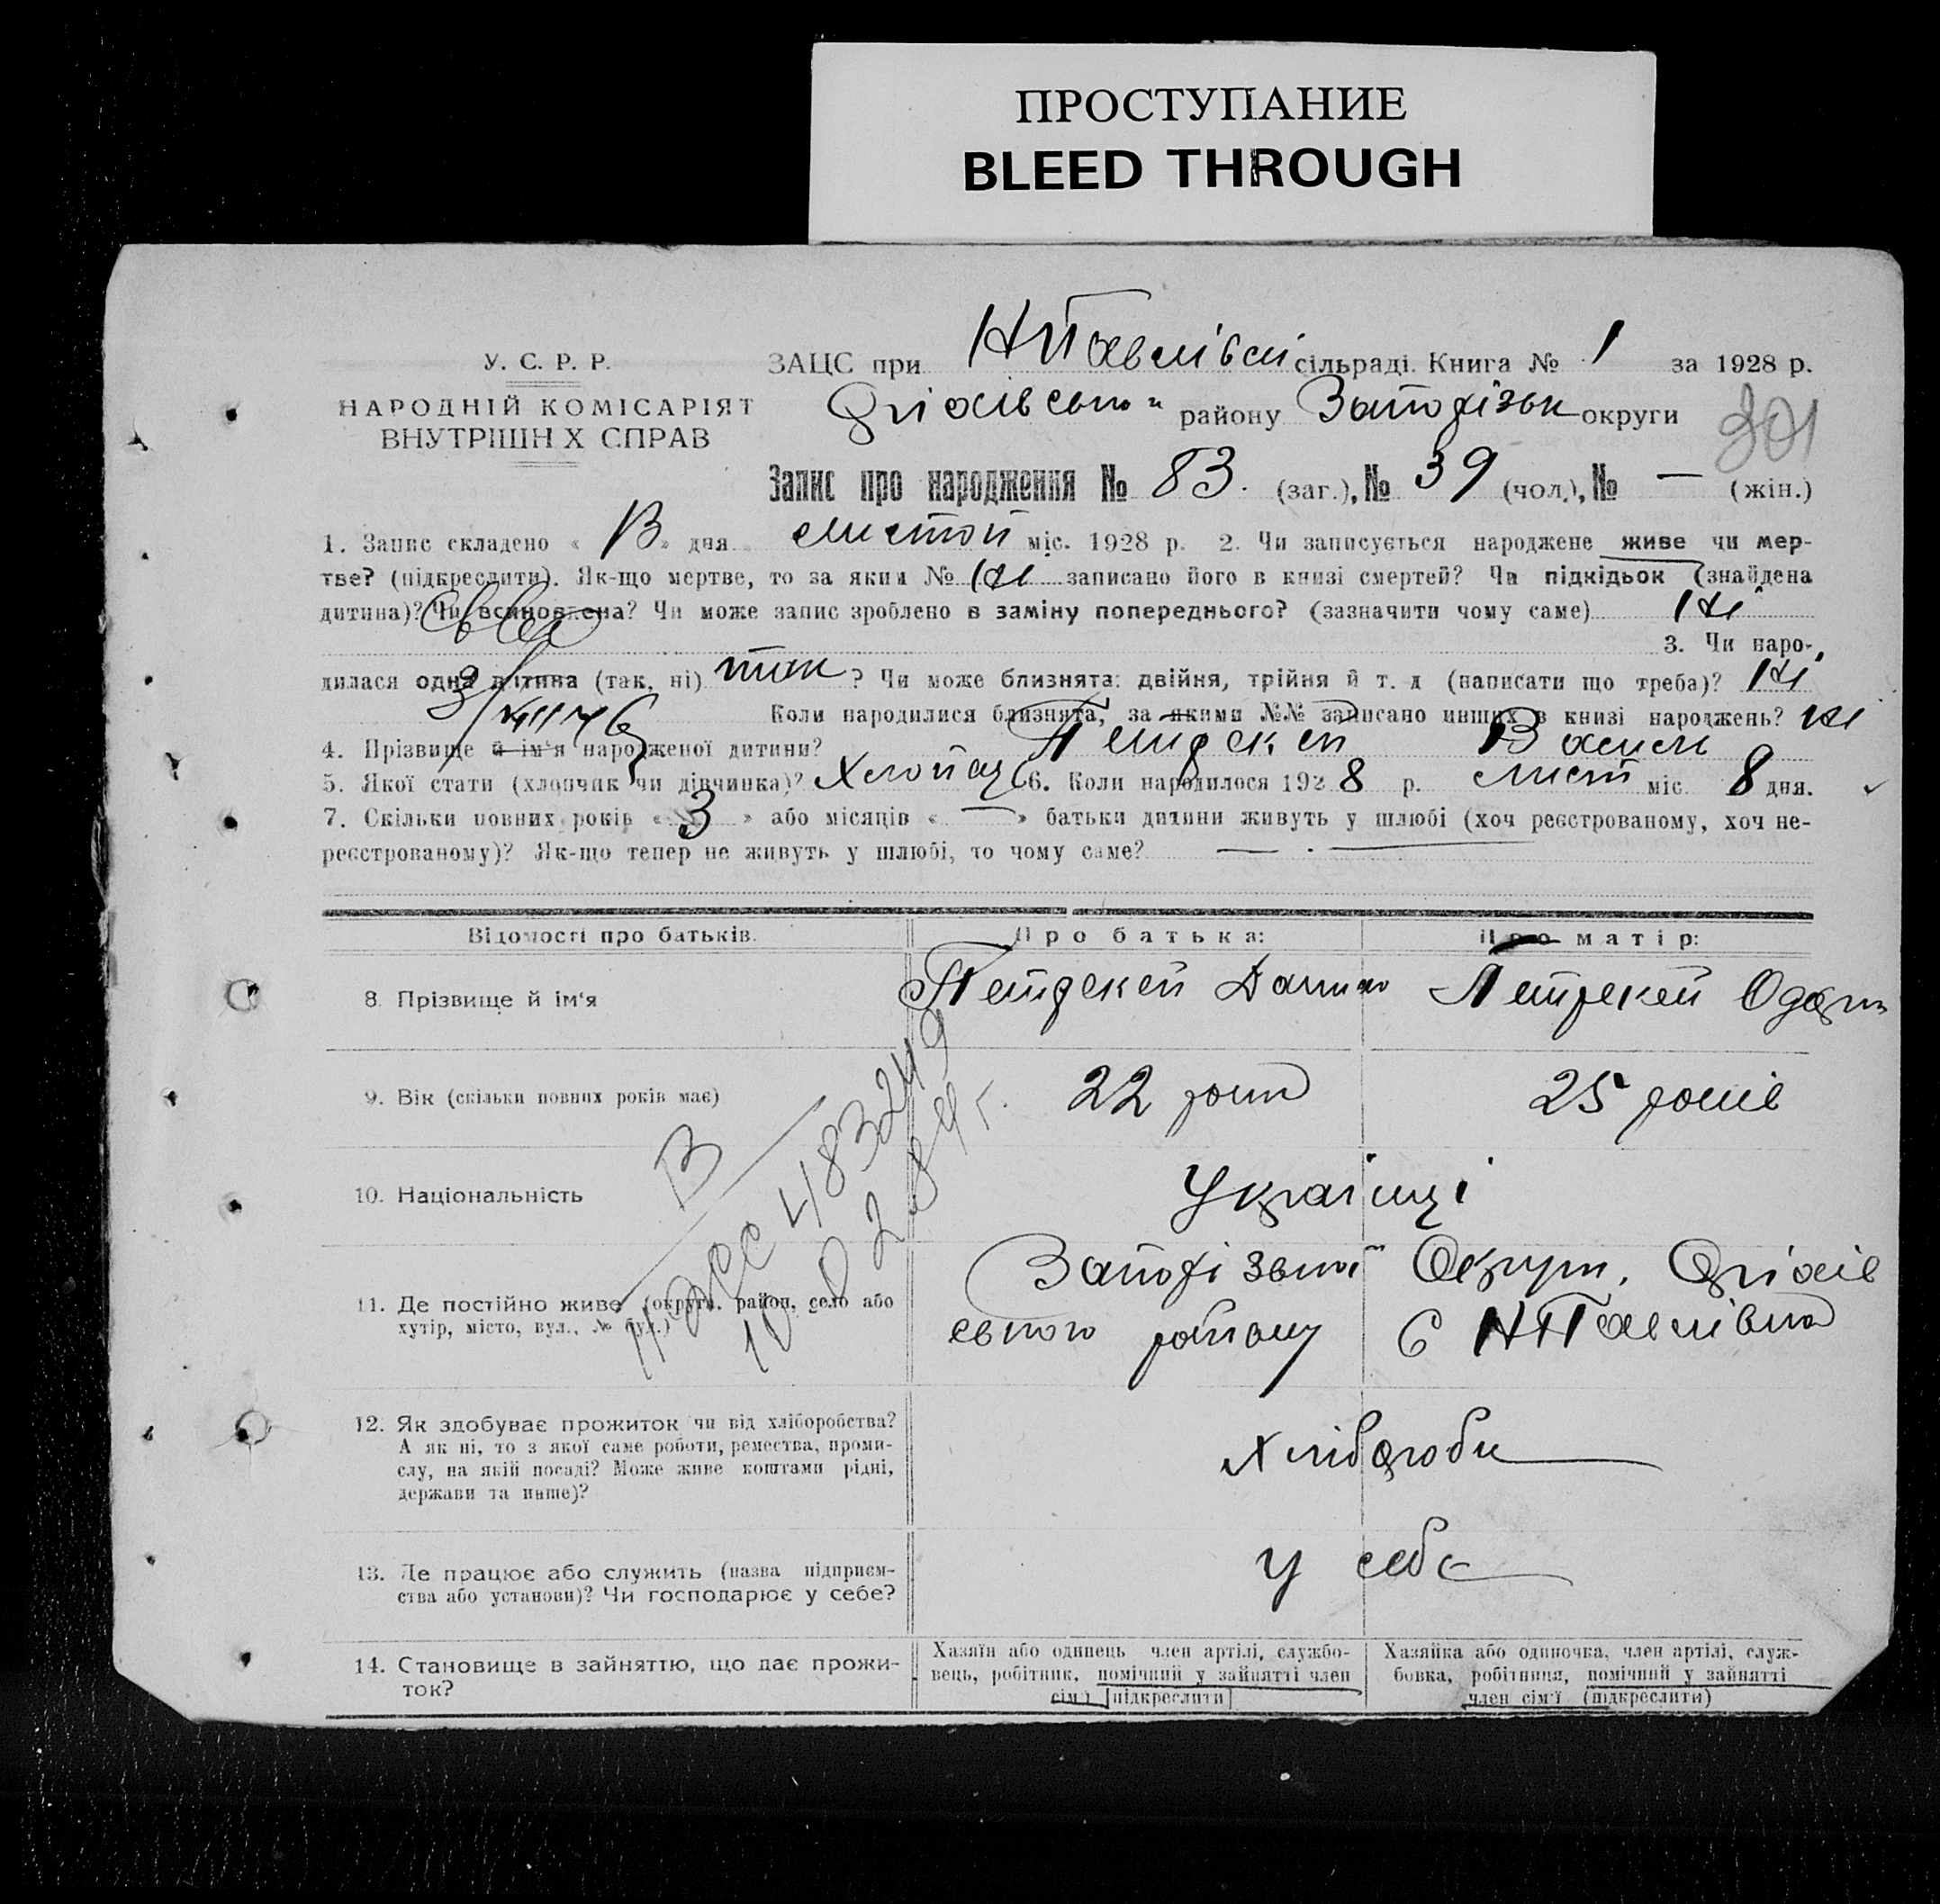 ПРОСТУПАНИЕ
BLEED THROUGH
У. С. Р. Р.
НАРОДНІЙ КОМІСАРІЯТ
ВНУТРІШН Х СПРАВ
ЗАЦС при НПавлівсй сільраді. Книга № 1 за 1928 р.
району Запорізьк округи
301
Запис про народження № 83. (заг.), № 39 (чол.), № — (жін.)
1. Запис складено « » дня листоп міс. 1928 р. 2. Чи записується народжене живе чи мер-
тве? (підкреслити). Як-що мертве, то за яким № ні записано його в книзі смертей? Чи підкідьок (знайдена
дитина)? Чи всиновлена? Чи може запис зроблено в заміну попереднього? (зазначити чому саме) ні
3. Чи наро-
дилася одна дитина (так, ні) так ? Чи може близнята: двійня, трійня й т. д (написати що треба)? ні
Коли народилися близнята, за якими №№ записано инших в книзі народжень? ні
4. Прізвище й ім'я народженої дитини? Петрекей Василь
5. Якої стати (хлопчик чи дівчинка)? Хлопець 6. Коли народилося 1928 р. лист міс 8 дня.
7. Скільки повних років « 3 » або місяців « — » батьки дитини живуть у шлюбі (хоч реєстрованому, хоч не-
реєстрованому)? Як-що тепер не живуть у шлюбі, то чому саме? —
Відомості про батьків.
Про батька:
Про матір:
8. Прізвище й ім'я
Петрекей Данило
Петрекей Одарка
9. Вік (скільки повних років має)
22 роки
25 років
10. Національність
Українці
11. Де постійно живе (округа, район, село або
хутір, місто, вул., № буд.)
Запорізької Округи, Оріхів
ського району С НПавлівка
12. Як здобуває прожиток чи від хліборобства?
А як ні, то з якої саме роботи, ремества, проми-
слу, на якій посаді? Може живе коштами рідні,
держави та инше)?
хлібороби
13. Де працює або служить (назва підприєм-
ства або установи)? Чи господарює у себе?
у себе
14. Становище в зайняттю, що дає прожи-
ток?
Хазяїн або одинець член артілі, службо-
вець, робітник, помічний у зайнятті член
сім'ї [підкреслити]
Хазяйка або одиночка, член артілі, служ-
бовка, робітниця, помічний у зайнятті
член сім'ї (підкреслити)